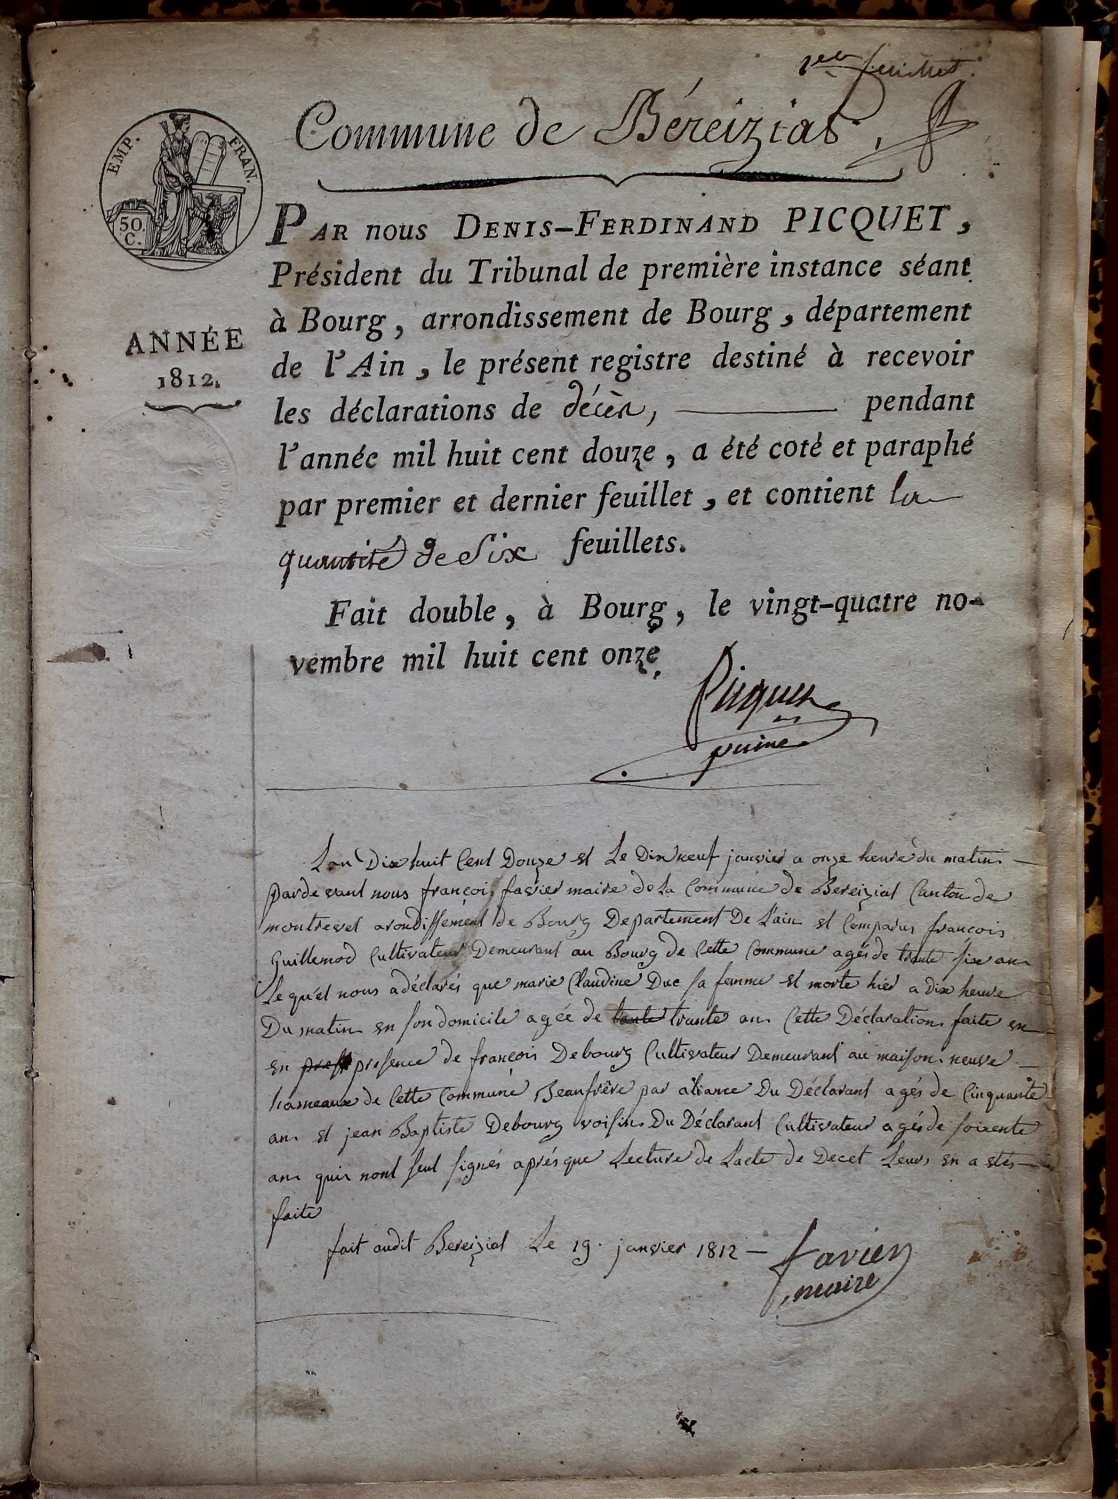 1er feuillet
Commune de Béreiziat.
EMP. FRAN.
50. C.
ANNÉE
1812.
PAR nous DENIS-FERDINAND PICQUET,
Président du Tribunal de première instance séant
à Bourg, arrondissement de Bourg, département
de l'Ain, le présent registre destiné à recevoir
les déclarations de décès, pendant
l'année mil huit cent douze, a été coté et paraphé
par premier et dernier feuillet, et contient la
quantité de Six feuillets.
Fait double, à Bourg, le vingt-quatre no-
vembre mil huit cent onze.
Picquet
puiné
Lan Dix huit Cent Douze et Le Dix neuf janvier a onze heure du matin
pardevant nous françois favier maire de La Commune de Bereiziat Canton de
montrevel arondissement de Bourg Departement De L'ain et Comparus françois
Guillemod Cultivateur Demeurant au Bourg de Cette Commune agés de trente six an
Le quel nous a déclarés que marie Claudine Duc sa femme et morte hier a Dix heure
Du matin en son domicile agée de trante an Cette Déclaration faite en
en presence de françois Debourg Cultivateur Demeurant au maison neuve
hameaux de Cette Commune Beaufrère par aliance Du Déclarant agés de Cinquante
an et jean Baptiste Debourg voisin Du Déclarant Cultivateur agés de soixente
an qui nont seul signés aprés que Lecture de Lacte de Decet Leurs en a etés
faite
fait audit Bereiziat Le 19 janvier 1812
favier
maire